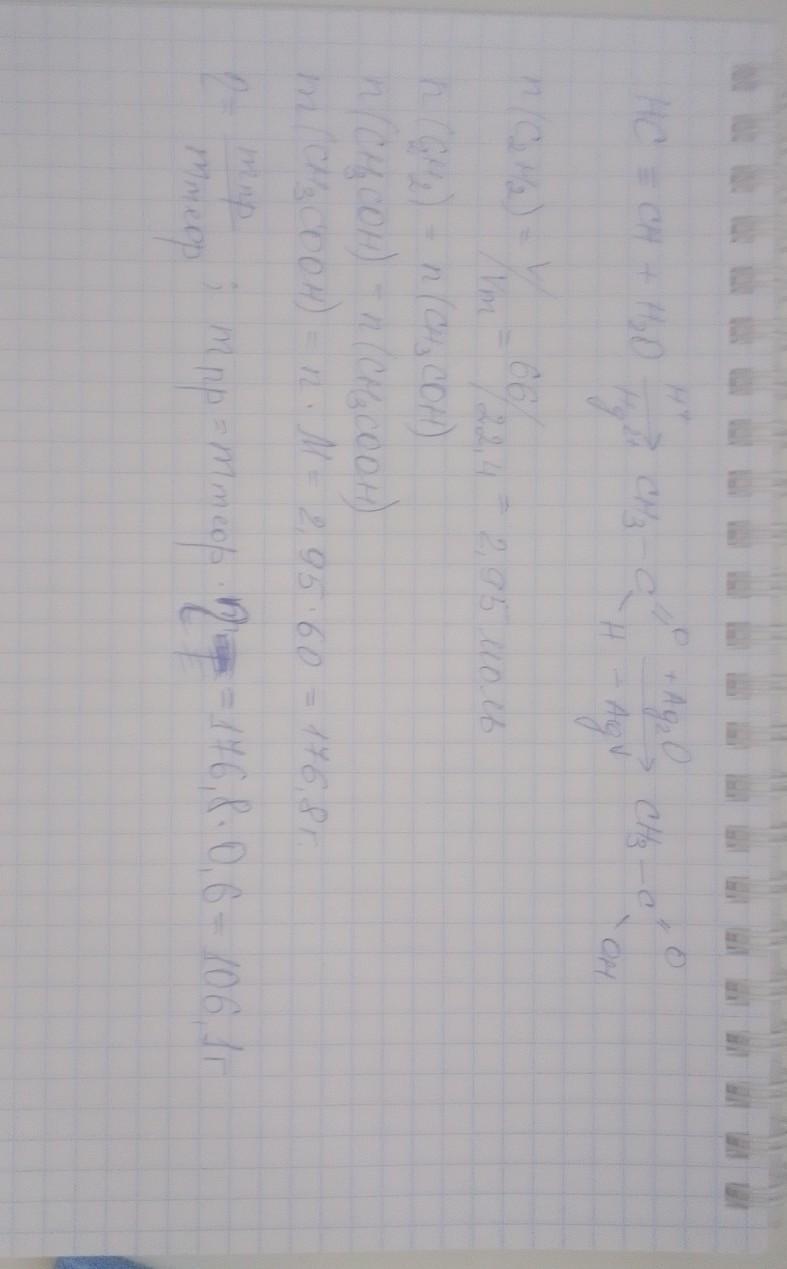 HC ≡ CH + H₂O →(H⁺, Hg²⁺) CH₃ – C(=O)H →(+Ag₂O, –Ag↓) CH₃ – C(=O)OH
n(C₂H₂) = V/Vm = 66/22,4 = 2,95 моль
n(C₂H₂) = n(CH₃COH)
n(CH₃COH) = n(CH₃COOH)
m(CH₃COOH) = n · M = 2,95 · 60 = 176,8 г.
η = mпр/mтеор ; mпр = mтеор · η = 176,8 · 0,6 = 106,1 г